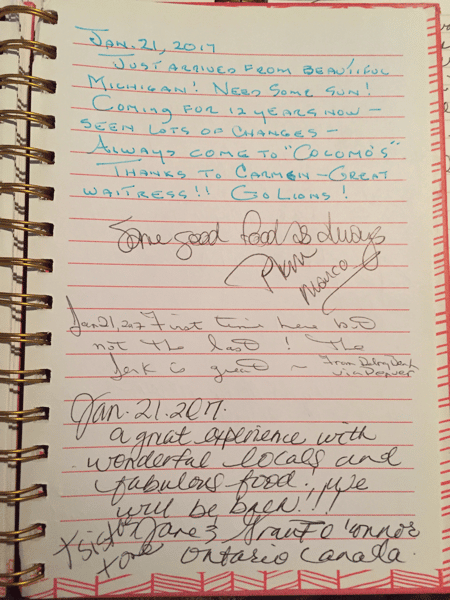 JAN. 21, 2017
JUST ARRIVED FROM BEAUTIFUL
MICHIGAN! NEED SOME SUN!
COMING FOR 12 YEARS NOW -
SEEN LOTS OF CHANGES -
ALWAYS COME TO "COLOMO'S"
THANKS TO CARMEN - GREAT
WAITRESS!! GO LIONS!
Some good food as always
Jan 21, 2017 First time here but
not the last! The
Jerk is great ~ From
via Denver
Jan. 21. 2017.
a great experience with
wonderful locals and
fabulous food. We
will be back!!!
Jane & Grant O'Connor
Ontario Canada.